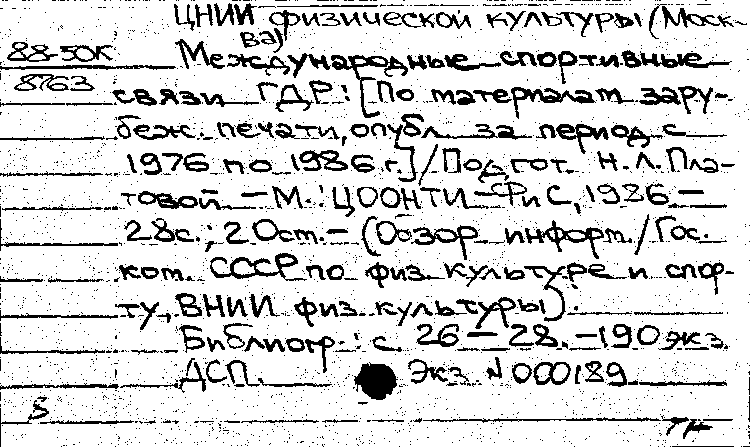 ЦНИИ физической культуры (Моск-
ва)
88-50К Международные спортивные
8763 связи ГДР: [По материалам зару-
беж. печати, опубл. за период с
1976 по 1986 г.] / Подгот. Н. Л. Пла-
товой. — М.: ЦООНТИ-ФиС, 1986. —
28с.; 20см. — (Обзор. информ. / Гос.
ком. СССР по физ. культуре и спор-
ту, ВНИИ физ. культуры).
Библиогр.: с. 26 — 28. — 190 экз.
ДСП. Экз. N 000189